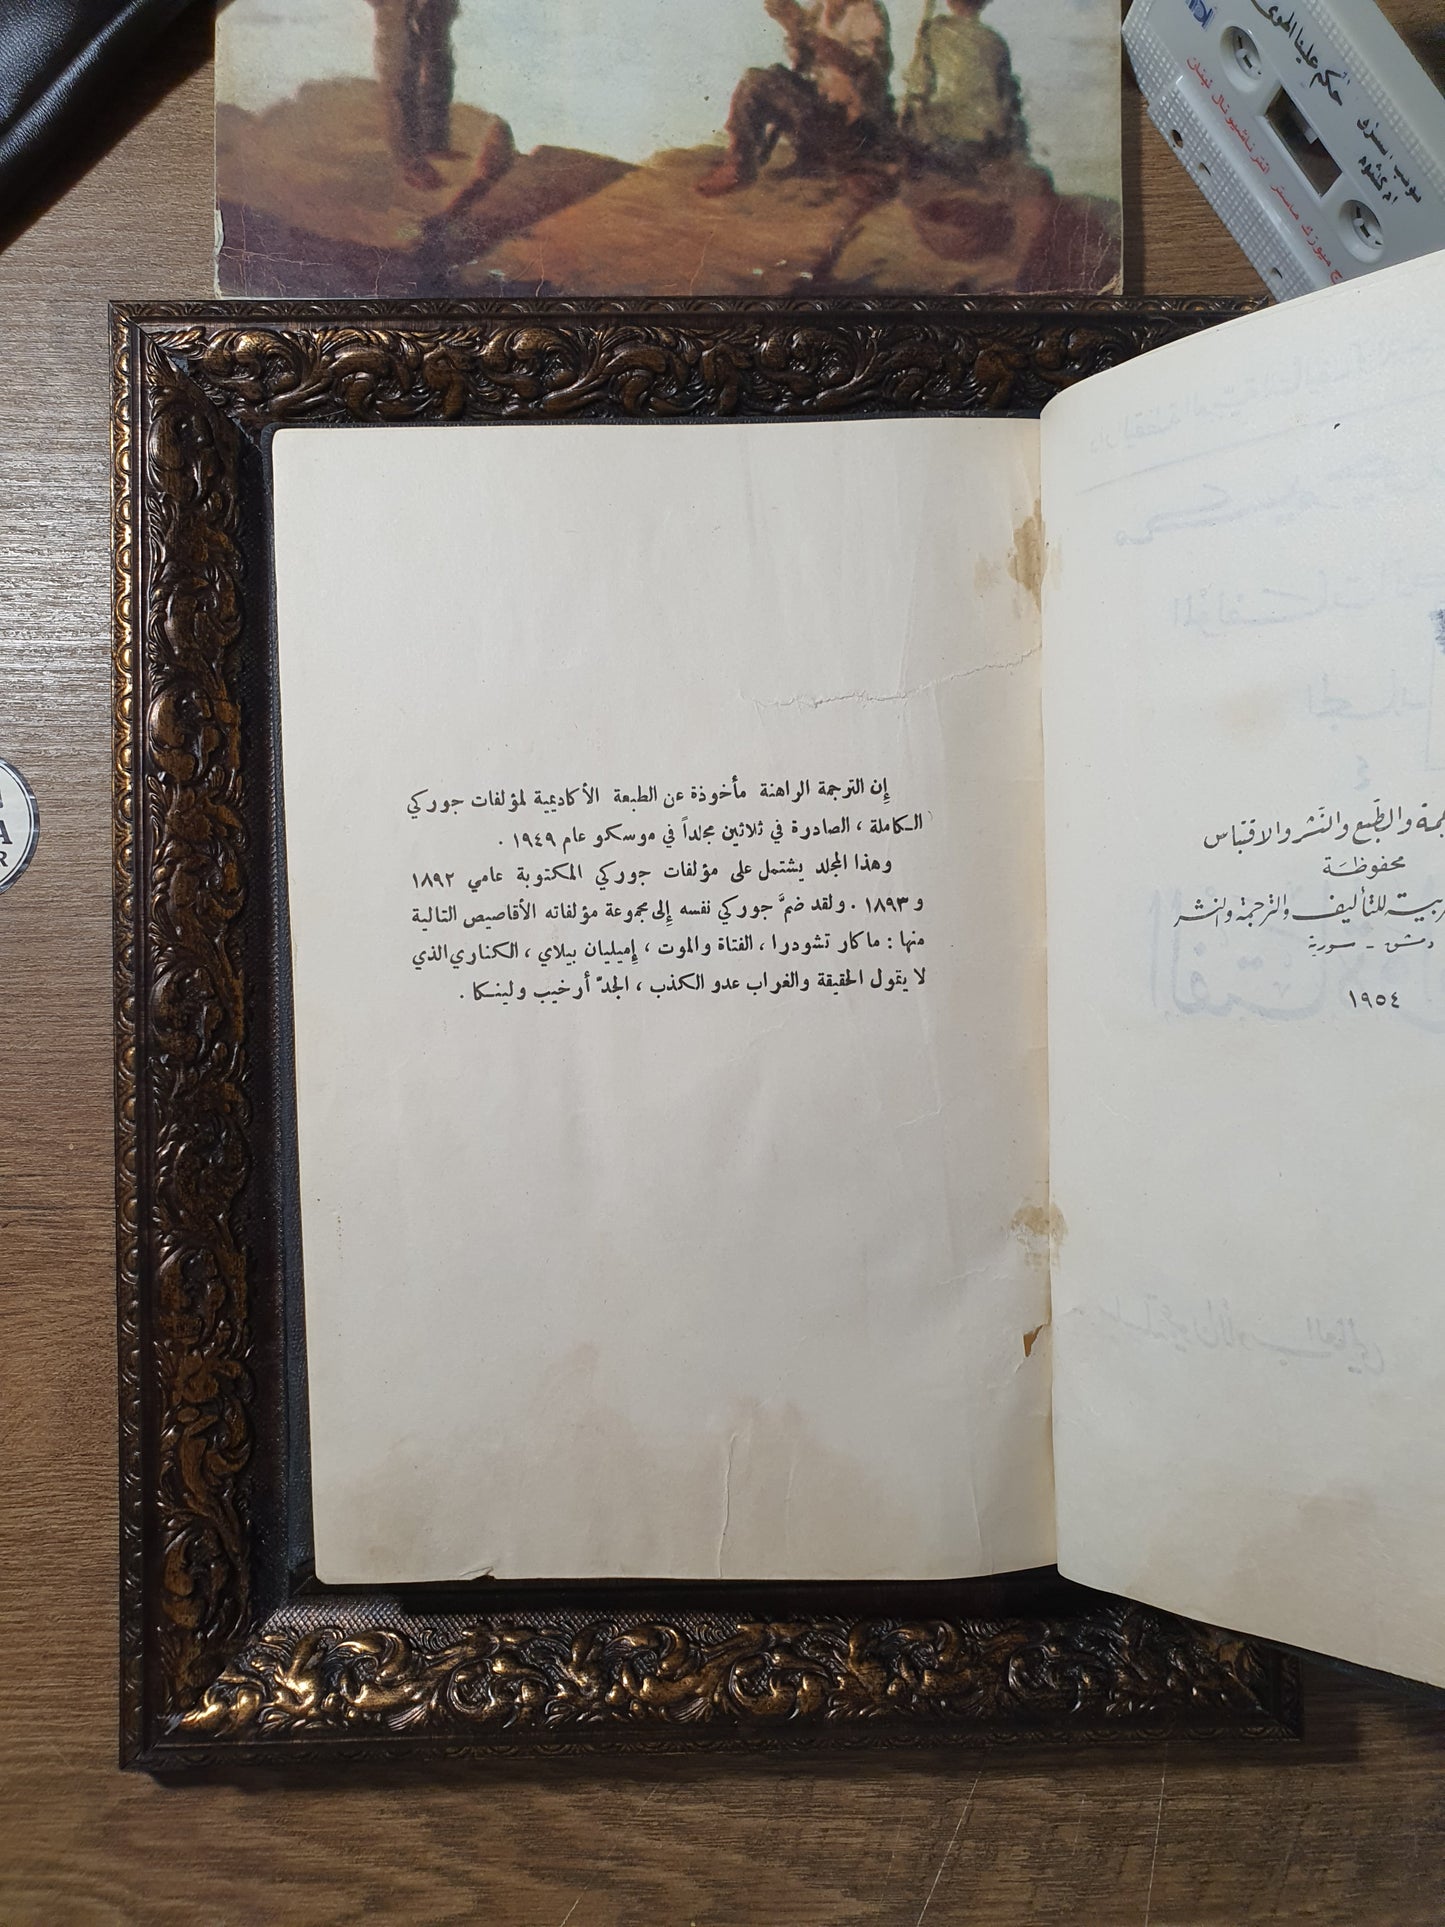 حكم علينا الهوى
ام كلثوم
إن الترجمة الراهنة مأخوذة عن الطبعة الأكاديمية لمؤلفات جوركي
الكاملة ، الصادرة في ثلاثين مجلداً في موسكو عام ١٩٤٩ .
وهذا المجلد يشتمل على مؤلفات جوركي المكتوبة عامي ١٨٩٢
و ١٨٩٣ . ولقد ضمَّ جوركي نفسه إلى مجموعة مؤلفاته الأقاصيص التالية
منها : ماكار تشودرا ، الفتاة والموت ، إميليان بيلاي ، الكناري الذي
لا يقول الحقيقة والغراب عدو الكذب ، الجدّ أرخيب ولينكا .
والطّبع والنّشر والاقتباس
محفوظة
للتأليف والترجمة والنشر
دمشق - سورية
١٩٥٤